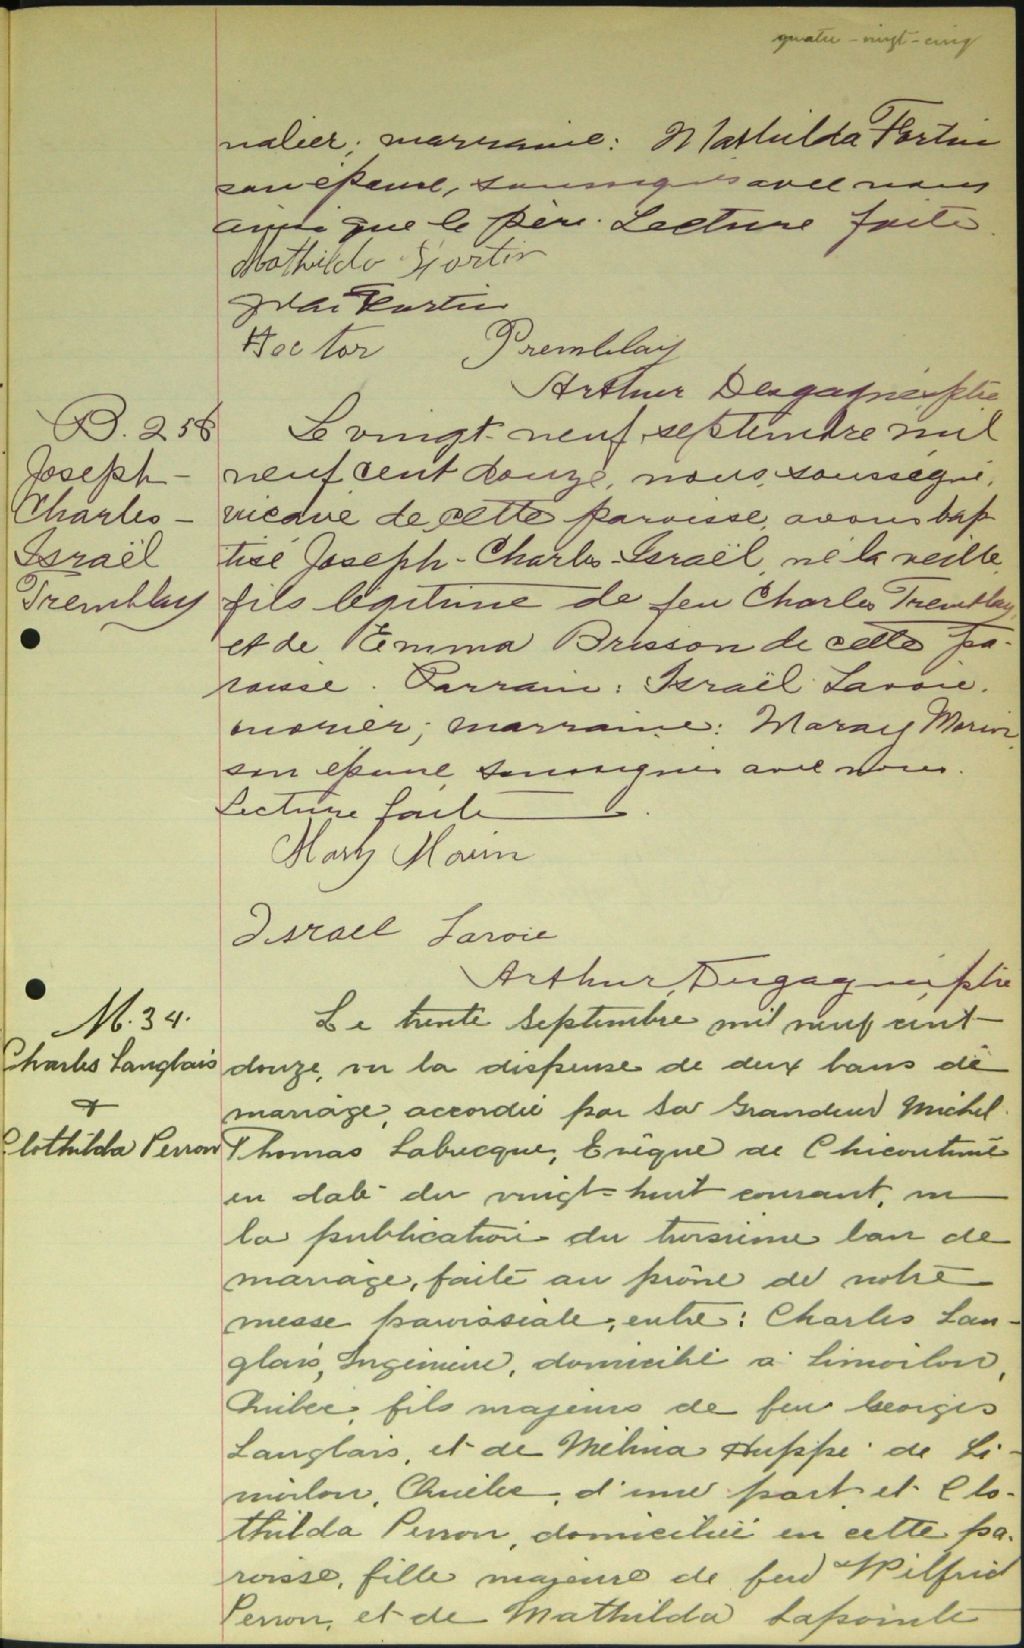 quatre-vingt-cinq
nalier; marraine: Mathilda Fortin
son épouse, soussignés avec nous
ainsi que le père. Lecture faite.
Mathilda Fortin
Fortin
Hector Tremblay
Arthur Desgagné ptre
B. 256
Joseph-
Charles-
Israël
Tremblay
Le vingt-neuf septembre mil
neuf cent douze, nous, soussigné,
vicaire de cette paroisse, avons bap
tisé Joseph-Charles-Israël, né la veille,
fils légitime de feu Charles Tremblay,
et de Emma Brisson de cette pa-
roisse. Parrain: Israël Lavoie,
; marraine: Maray Morin,
son épouse soussignés avec nous.
Lecture faite.
Mary Morin
Israel Lavoie
Arthur Desgagné, ptre
M. 34.
Charles Langlais
&
Clothilda Perron
Le trente septembre mil neuf cent
douze, vu la dispense de deux bans de
mariage, accordée par Sa Grandeur Michel
Thomas Labrecque, Evêque de Chicoutimi
en date du vingt-huit courant, vu
la publication du troisième ban de
mariage, faite au prône de notre
messe paroissiale, entre: Charles Lan-
glais, Ingénieur, domicilié à Limoilou,
Québec, fils majeur de feu Georges
Langlais, et de Mélina Huppé de Li-
moilou, Québec, d'une part et Clo-
thilda Perron, domiciliée en cette pa-
roisse, fille majeure de feu Wilfrid
Perron, et de Mathilda Lapointe